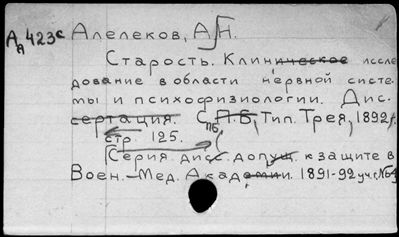 А А 423с Алелеков, А.Н.
Старость. Клиническое иссле
дование в области нервной систе-
мы и психофизиологии. Дис.
сертация. СПБ, Тип. Трея, 1892 г.
стр. 125.
(Серия дисс. допущ. к защите в
Воен.-Мед. Академии. 1891-92 уч. г. №